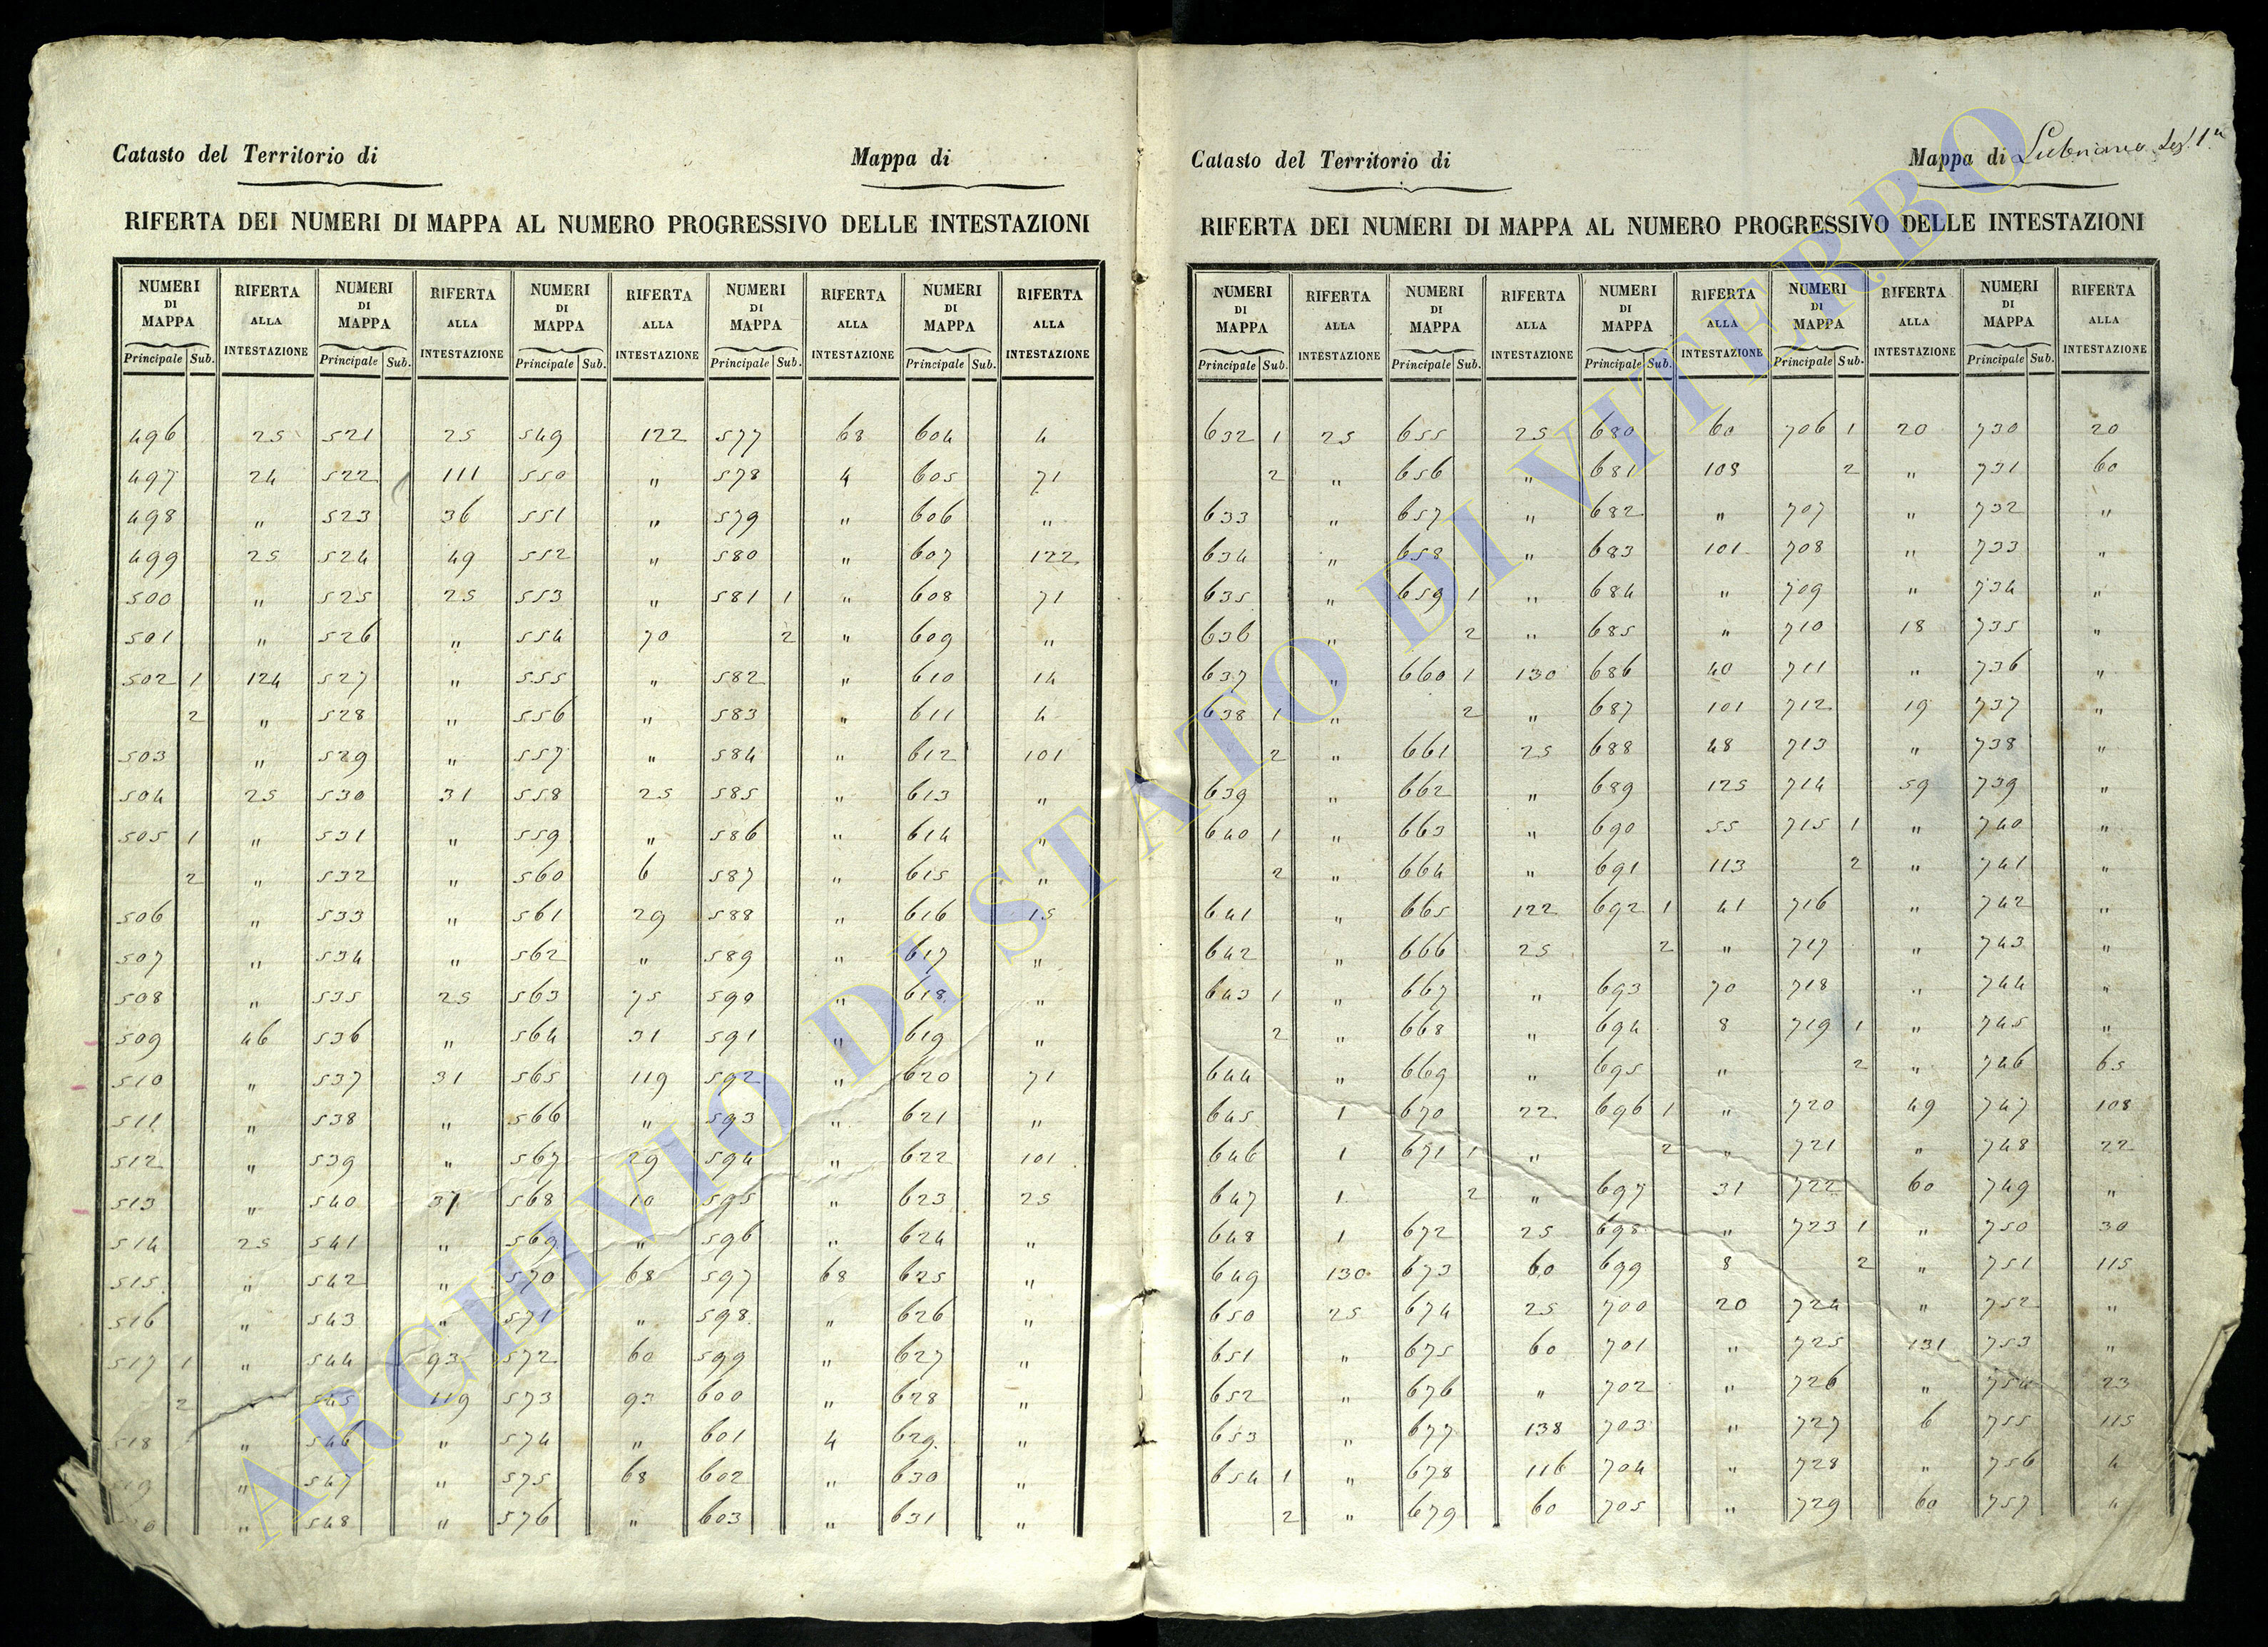 Catasto del Territorio di Mappa di
RIFERTA DEI NUMERI DI MAPPA AL NUMERO PROGRESSIVO DELLE INTESTAZIONI
NUMERI DI MAPPA RIFERTA ALLA INTESTAZIONE NUMERI DI MAPPA RIFERTA ALLA INTESTAZIONE NUMERI DI MAPPA RIFERTA ALLA INTESTAZIONE NUMERI DI MAPPA RIFERTA ALLA INTESTAZIONE NUMERI DI MAPPA RIFERTA ALLA INTESTAZIONE
Principale Sub. Principale Sub. Principale Sub. Principale Sub. Principale Sub.
496 25 521 25 549 122 577 68 604 4
497 24 522 111 550 " 578 4 605 71
498 " 523 36 551 " 579 " 606 "
499 25 524 49 552 " 580 " 607 122
500 " 525 25 553 " 581 1 " 608 71
501 " 526 " 554 70 2 " 609 "
502 1 124 527 " 555 " 582 " 610 14
2 " 528 " 556 " 583 " 611 4
503 " 529 " 557 " 584 " 612 101
504 25 530 31 558 25 585 " 613 "
505 1 " 531 " 559 " 586 " 614 "
2 " 532 " 560 6 587 " 615 "
506 " 533 " 561 29 588 " 616 15
507 " 534 " 562 " 589 " 617 "
508 " 535 25 563 75 590 " 618 "
509 46 536 " 564 31 591 " 619 "
510 " 537 31 565 119 592 " 620 71
511 " 538 " 566 " 593 " 621 "
512 " 539 " 567 29 594 " 622 101
513 " 540 31 568 10 595 " 623 25
514 25 541 " 569 " 596 " 624 "
515 " 542 " 570 68 597 68 625 "
516 " 543 " 571 " 598 " 626 "
517 1 " 544 93 572 60 599 " 627 "
2 " 545 119 573 93 600 " 628 "
518 " 546 " 574 " 601 4 629 "
" 547 " 575 68 602 " 630 "
" 548 " 576 " 603 " 631 "
Catasto del Territorio di Mappa di Lubriano Sez. 1a
RIFERTA DEI NUMERI DI MAPPA AL NUMERO PROGRESSIVO DELLE INTESTAZIONI
NUMERI DI MAPPA RIFERTA ALLA INTESTAZIONE NUMERI DI MAPPA RIFERTA ALLA INTESTAZIONE NUMERI DI MAPPA RIFERTA ALLA INTESTAZIONE NUMERI DI MAPPA RIFERTA ALLA INTESTAZIONE NUMERI DI MAPPA RIFERTA ALLA INTESTAZIONE
Principale Sub. Principale Sub. Principale Sub. Principale Sub. Principale Sub.
632 1 25 655 25 680 60 706 1 20 730 20
2 " 656 " 681 108 2 " 731 60
633 " 657 " 682 " 707 " 732 "
634 " 658 " 683 101 708 " 733 "
635 " 659 1 " 684 " 709 " 734 "
636 " 2 " 685 " 710 18 735 "
637 " 660 1 130 686 40 711 " 736 "
638 1 " 2 " 687 101 712 19 737 "
2 " 661 25 688 48 713 " 738 "
639 " 662 " 689 125 714 59 739 "
640 1 " 663 " 690 55 715 1 " 740 "
2 " 664 " 691 113 2 " 741 "
641 " 665 122 692 1 41 716 " 742 "
642 " 666 25 2 " 717 " 743 "
643 1 " 667 " 693 70 718 " 744 "
2 " 668 " 694 8 719 1 " 745 "
644 " 669 " 695 " 2 " 746 65
645 1 670 22 696 1 " 720 49 747 108
646 1 671 1 " 2 " 721 " 748 22
647 1 2 " 697 31 722 60 749 "
648 1 672 25 698 " 723 1 " 750 30
649 130 673 60 699 8 2 " 751 115
650 25 674 25 700 20 724 " 752 "
651 " 675 60 701 " 725 131 753 "
652 " 676 " 702 " 726 " 754 23
653 " 677 138 703 " 727 6 755 115
654 1 " 678 116 704 " 728 " 756 4
2 " 679 60 705 " 729 60 757 4
ARCHIVIO DI STATO DI VITERBO